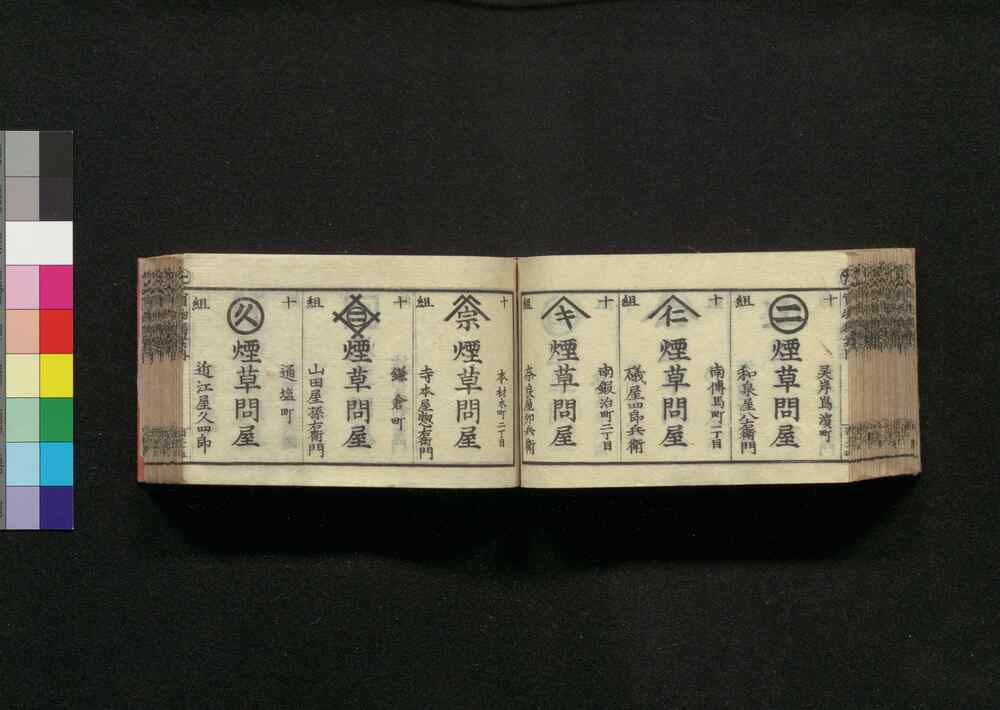 十
組
㊁
煙草問屋
霊岸嶌濱町
和泉屋八右衛門
十
組
仁
煙草問屋
南傳馬町二丁目
礒屋四郎兵衛
十
組
キ
煙草問屋
南鍛治町二丁目
奈良屋卯兵衛
十
組
宗
煙草問屋
本材木町二丁目
寺本屋惣右衛門
十
組
煙草問屋
鎌倉町
山田屋孫右衛門
十
組
久
煙草問屋
通塩町
近江屋久四郎